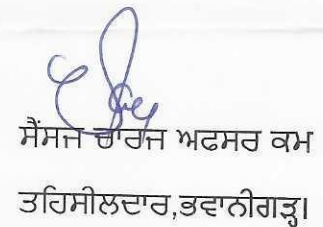 ਸੈਂਸਜ ਚਾਰਜ ਅਫਸਰ ਕਮ
ਤਹਿਸੀਲਦਾਰ,ਭਵਾਨੀਗੜ੍ਹ।